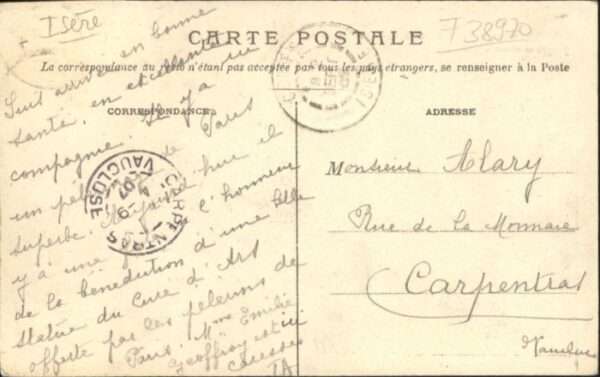 Isère
738970
CARTE POSTALE
La correspondance au recto n'étant pas acceptée par tous les pays étrangers, se renseigner à la Poste
CORRESPONDANCE
ADRESSE
Suis arrivée en bonne
santé, en excellente
compagnie. Il y a
un de Paris
superbe. Aujourd'hui il
y a une l'honneur
de la bénédiction d'une belle
statue du Curé d'Ars
offerte par les pelerins de
Paris. Mme Emilie
Geoffroy est ici
Monsieur Alary
Rue de la Monnaie
Carpentras
Vaucluse
CARPENTRAS
VAUCLUSE
ISERE